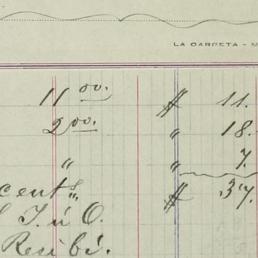 LA CARPETA - M
11 00. $ 11.
2 00. " 18.
" " 7.
cents. $ 37.
I. ú O.
Recibí.